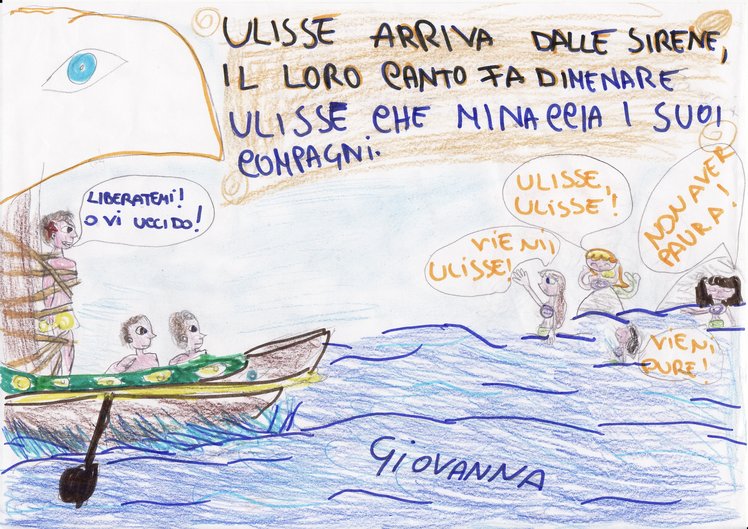 ULISSE ARRIVA DALLE SIRENE,
IL LORO CANTO FA DIMENARE
ULISSE CHE MINACCIA I SUOI
COMPAGNI.
LIBERATEMI!
O VI UCCIDO!
ULISSE,
ULISSE!
NON AVER
PAURA!
VIENI
ULISSE!
VIENI
PURE!
GIOVANNA